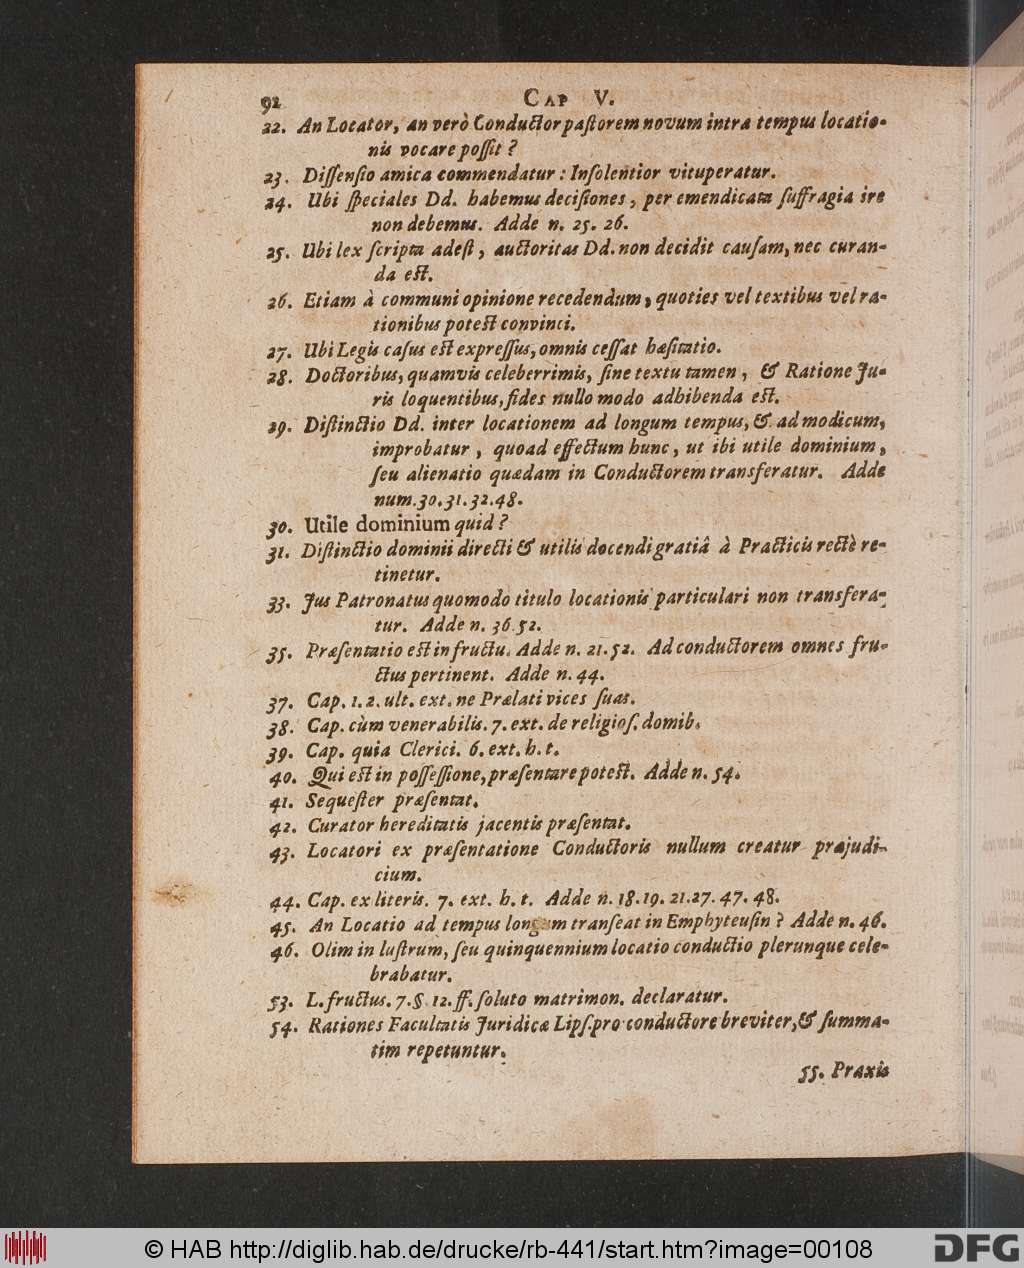 92
CAP V.
22. An Locator, an verò Conductor pastorem novum intra tempus locatio-
nis vocare possit?
23. Dissensio amica commendatur: Insolentior vituperatur.
24. Ubi speciales Dd. habemus decisiones, per emendicata suffragia ire
non debemus. Adde n. 25. 26.
25. Ubi lex scripta adest, auctoritas Dd. non decidit causam, nec curan-
da est.
26. Etiam à communi opinione recedendum, quoties vel textibus vel ra-
tionibus potest convinci.
27. Ubi Legis casus est expressus, omnis cessat hæsitatio.
28. Doctoribus, quamvis celeberrimis, sine textu tamen, & Ratione Ju-
ris loquentibus, fides nullo modo adhibenda est.
29. Distinctio Dd. inter locationem ad longum tempus, & ad modicum,
improbatur, quoad effectum hunc, ut ibi utile dominium,
seu alienatio quædam in Conductorem transferatur. Adde
num. 30. 31. 32. 48.
30. Utile dominium quid?
31. Distinctio dominii directi & utilis docendi gratiâ à Practicis rectè re-
tinetur.
33. Jus Patronatus quomodo titulo locationis particulari non transfera-
tur. Adde n. 36. 52.
35. Præsentatio est in fructu. Adde n. 21. 52. Ad conductorem omnes fru-
ctus pertinent. Adde n. 44.
37. Cap. 1. 2. ult. ext. ne Prælati vices suas.
38. Cap. cùm venerabilis. 7. ext. de religios. domib.
39. Cap. quia Clerici. 6. ext. h. t.
40. Qui est in possessione, præsentare potest. Adde n. 54.
41. Sequester præsentat.
42. Curator hereditatis jacentis præsentat.
43. Locatori ex præsentatione Conductoris nullum creatur præjudi-
cium.
44. Cap. ex literis. 7. ext. h. t. Adde n. 18. 19. 21. 27. 47. 48.
45. An Locatio ad tempus longum transeat in Emphyteusin? Adde n. 46.
46. Olim in lustrum, seu quinquennium locatio conductio plerunque cele-
brabatur.
53. L. fructus. 7. §. 12. ff. soluto matrimon. declaratur.
54. Rationes Facultatis Juridicæ Lips. pro conductore breviter, & summa-
tim repetuntur.
55. Praxis
© HAB http://diglib.hab.de/drucke/rb-441/start.htm?image=00108
DFG